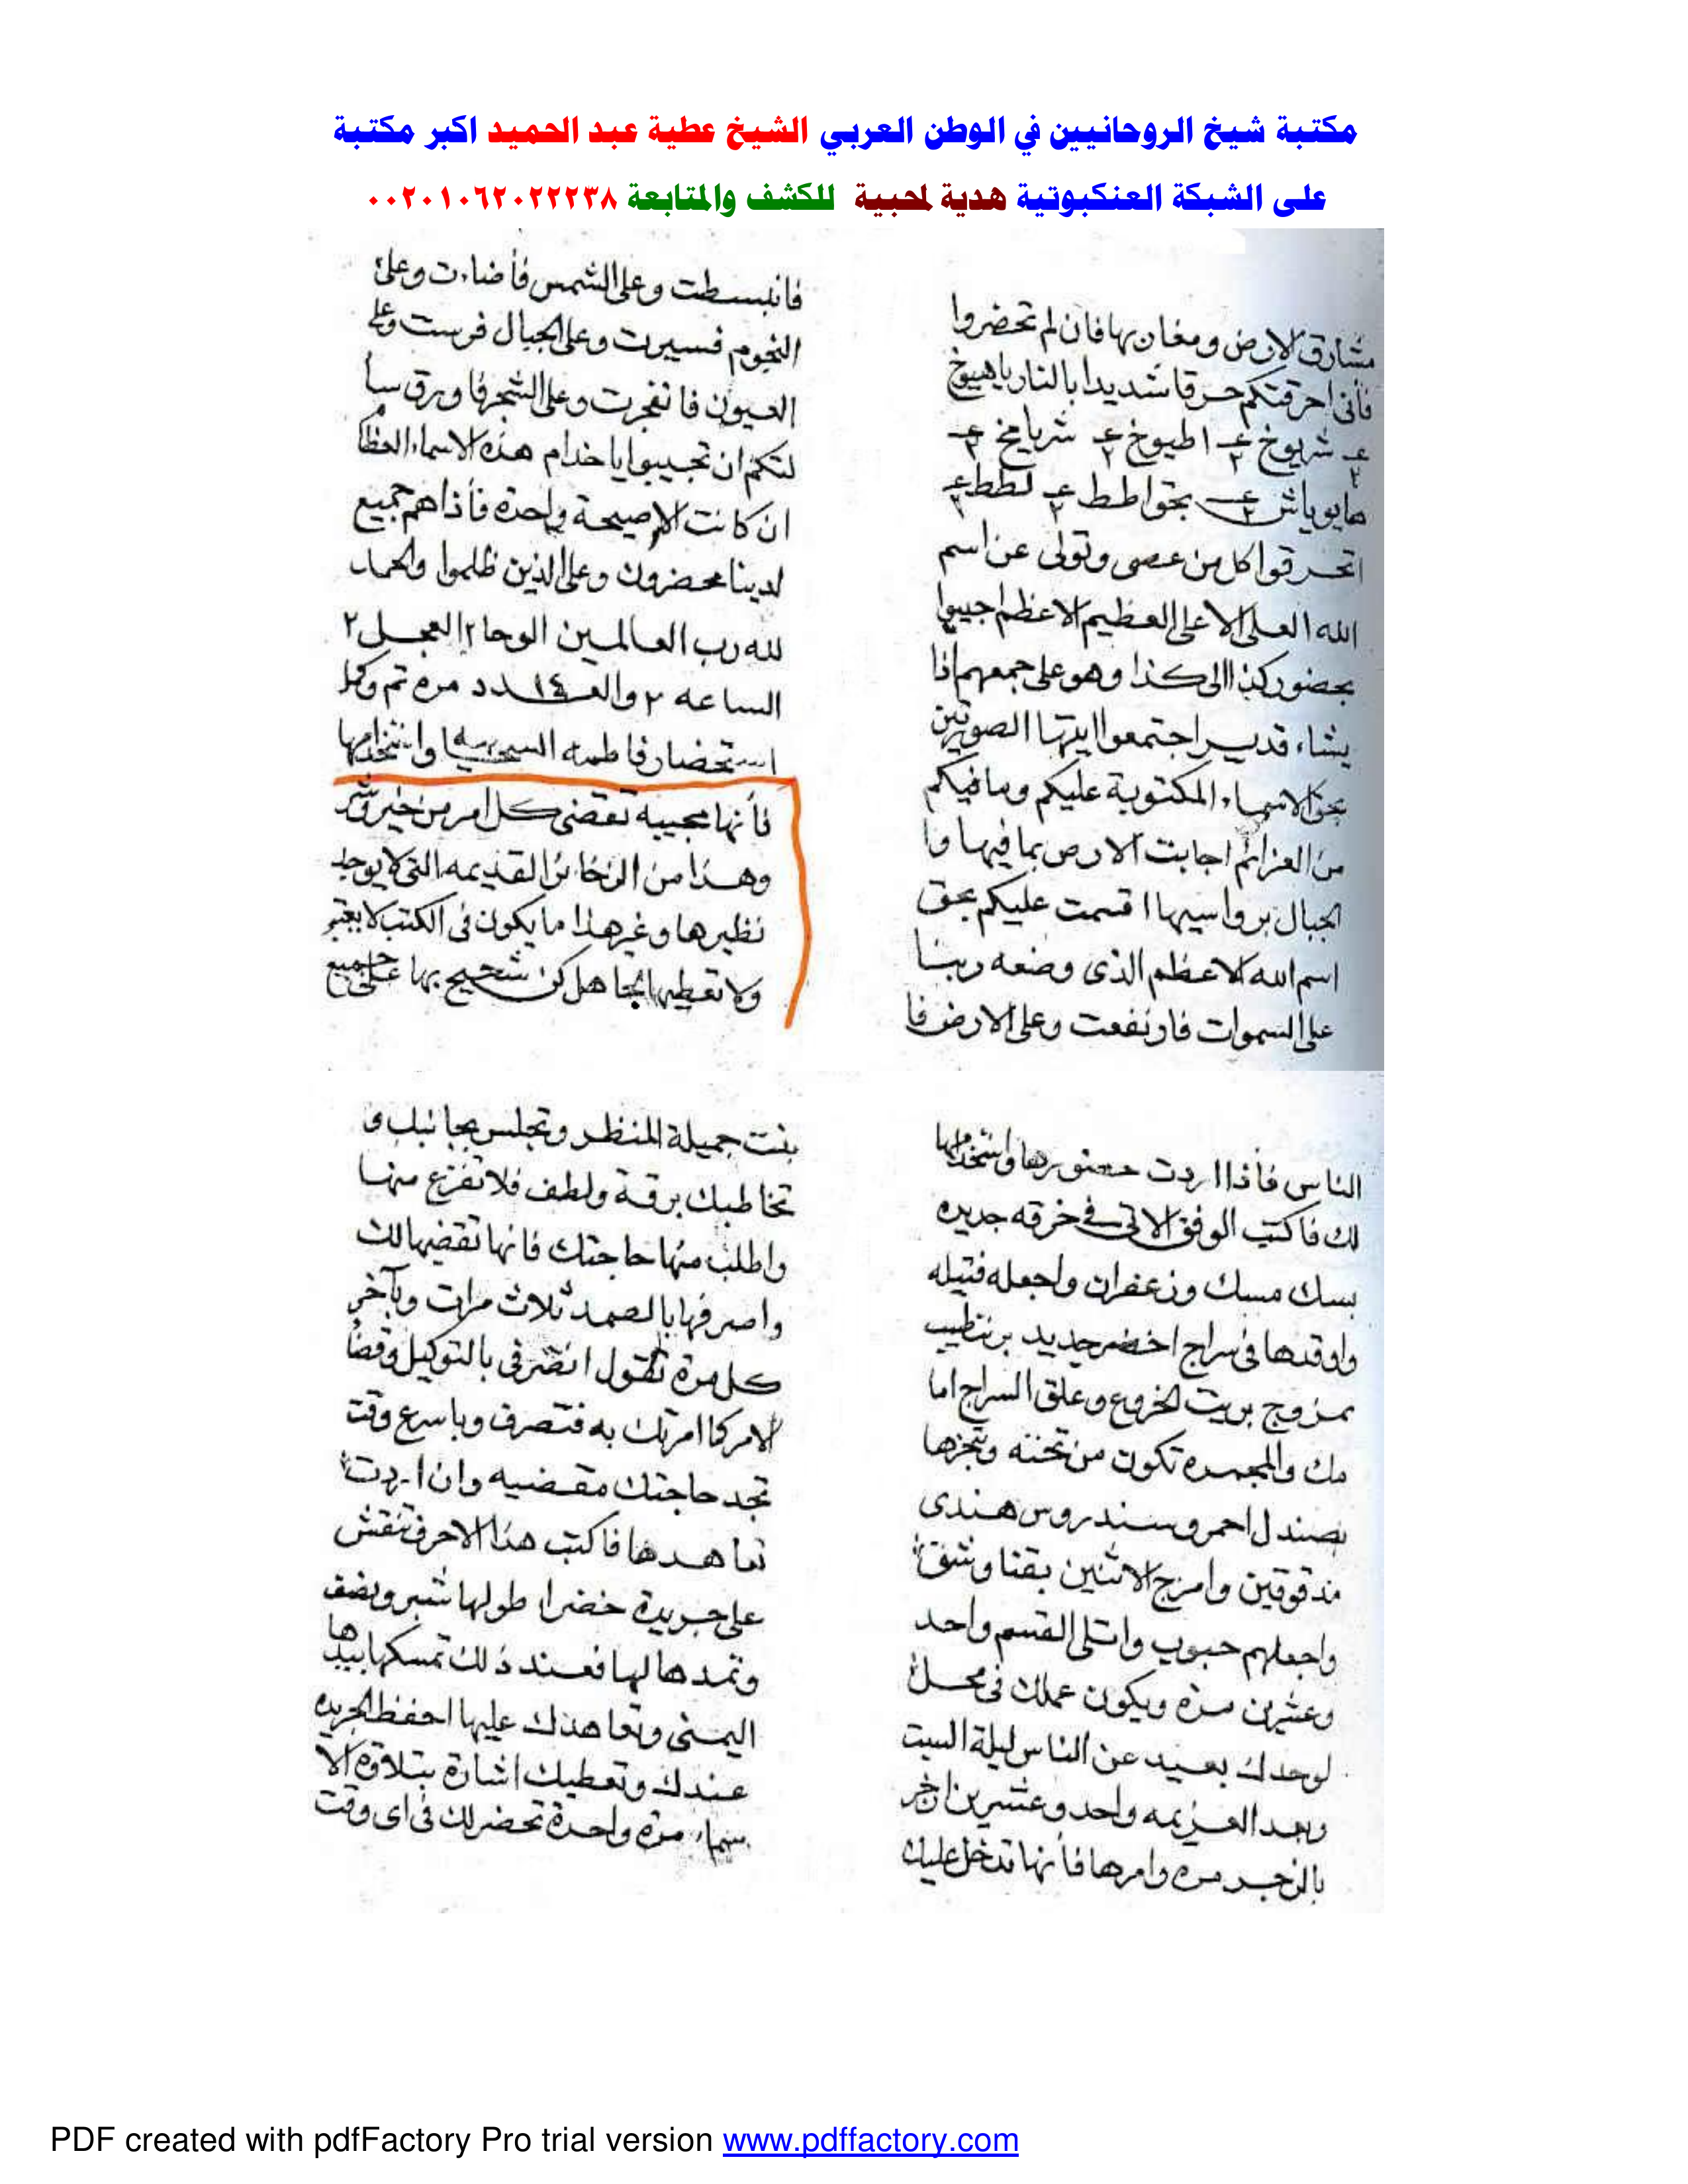 مكتبة شيخ الروحانيين في الوطن العربي الشيخ عطية عبد الحميد اكبر مكتبة
على الشبكة العنكبوتية هدية لمحبية للكشف والمتابعة ٠٠٢٠١٠٦٢٠٢٢٢٣٨
مشارق الارض ومغاربها فان لم تحضروا
فأنى احرقتكم حرقا شديدا بالنار ياهيوخ
ع٢ شريوخ ع٢ اطيوخ ع٢ شرياخ ع٢
هايوياش ع٢ بحق اطط ع٢ لطط ع٢
اتحرقوا كل من عصى وتولى عن اسم
الله العلى الاعلى العظيم الاعظم اجيبوا
بحضور كذا الى كذا وهو على جمعهم اذا
يشاء قدير اجتمعوا ايتها الصورتين
بحق الاسماء المكتوبة عليكم وما فيكم
من العزائم اجابت الارض بما فيها وا
لجبال برواسيها اقسمت عليكم بحق
اسم الله الاعظم الذى وضعه ربنا
على السموات فارتفعت وعلى الارض فا
فانبسطت وعلى الشمس فأضاءت وعلى
النجوم فسيرت وعلى الجبال فرست وعلى
العيون فانفجرت وعلى الشجر فاورق سأ
لتكم ان تجيبوا ياخدام هذه الاسماء العظا
ان كانت الاصيحة واحدة فأذا هم جميع
لدينا محضرون وعلى الذين ظلموا والحمد
لله رب العالمين الوحا ٢ العجل ٢
الساعه ٢ والعـدد ١٤ مره تم وكمل
استحضار فاطمه السحبيه واستخدامها
فأنها مجيبه تقضى كل امر من خير وشر
وهذا من الذخائر القديمه التى لا يوجد
نظيرها وغير هذا ما يكون فى الكتب لا يعتبر
ولا تعطيها لجاهل كن شحيح بها على جميع
الناس فأذا اردت حضورها واستخدامها
لك فاكتب الوفق الاتى فى خرقه جديده
بسك مسك وزعفران واجعله فتيله
واوقدها فى سراج اخضر جديد بزيت طيب
ممزوج بزيت الخروع وعلق السراج اما
مك والمجمره تكون من تحته وتبخرها
بصندل احمر وسندروس هندى
مدقوقين وامزج الاثنين بقنا وشق
واجعلهم حبوب واتلى القسم واحد
وعشرين مره ويكون عملك فى محل
لوحدك بعيد عن الناس ليلة السبت
وبعد العزيمه واحد وعشرين ازجر
بالزجر مره وامرها فأنها تدخل عليك
بنت جميلة المنظر وتجلس بجانبك و
تخاطبك برقة ولطف فلا تفزع منها
واطلب منها حاجتك فانها تقضيها لك
واصرفها بالصمد ثلاث مرات وبآخر
كل مرة تقول انصرفى بالتوكيل وقضا
الامر كما امرتك به فتصرف وباسرع وقت
تجد حاجتك مقضيه وان اردت
تعاهدها فاكتب هذا الاحرف تنقش
على جريدة خضرا طولها شبر ونصف
وتمدها لها فعند ذلك تمسكها بيدها
اليمنى وتعاهدك عليها احفظ الجريده
عندك وتعطيك اشارة بتلاوة الا
سماء مرة واحدة تحضر لك فى اى وقت
PDF created with pdfFactory Pro trial version www.pdffactory.com